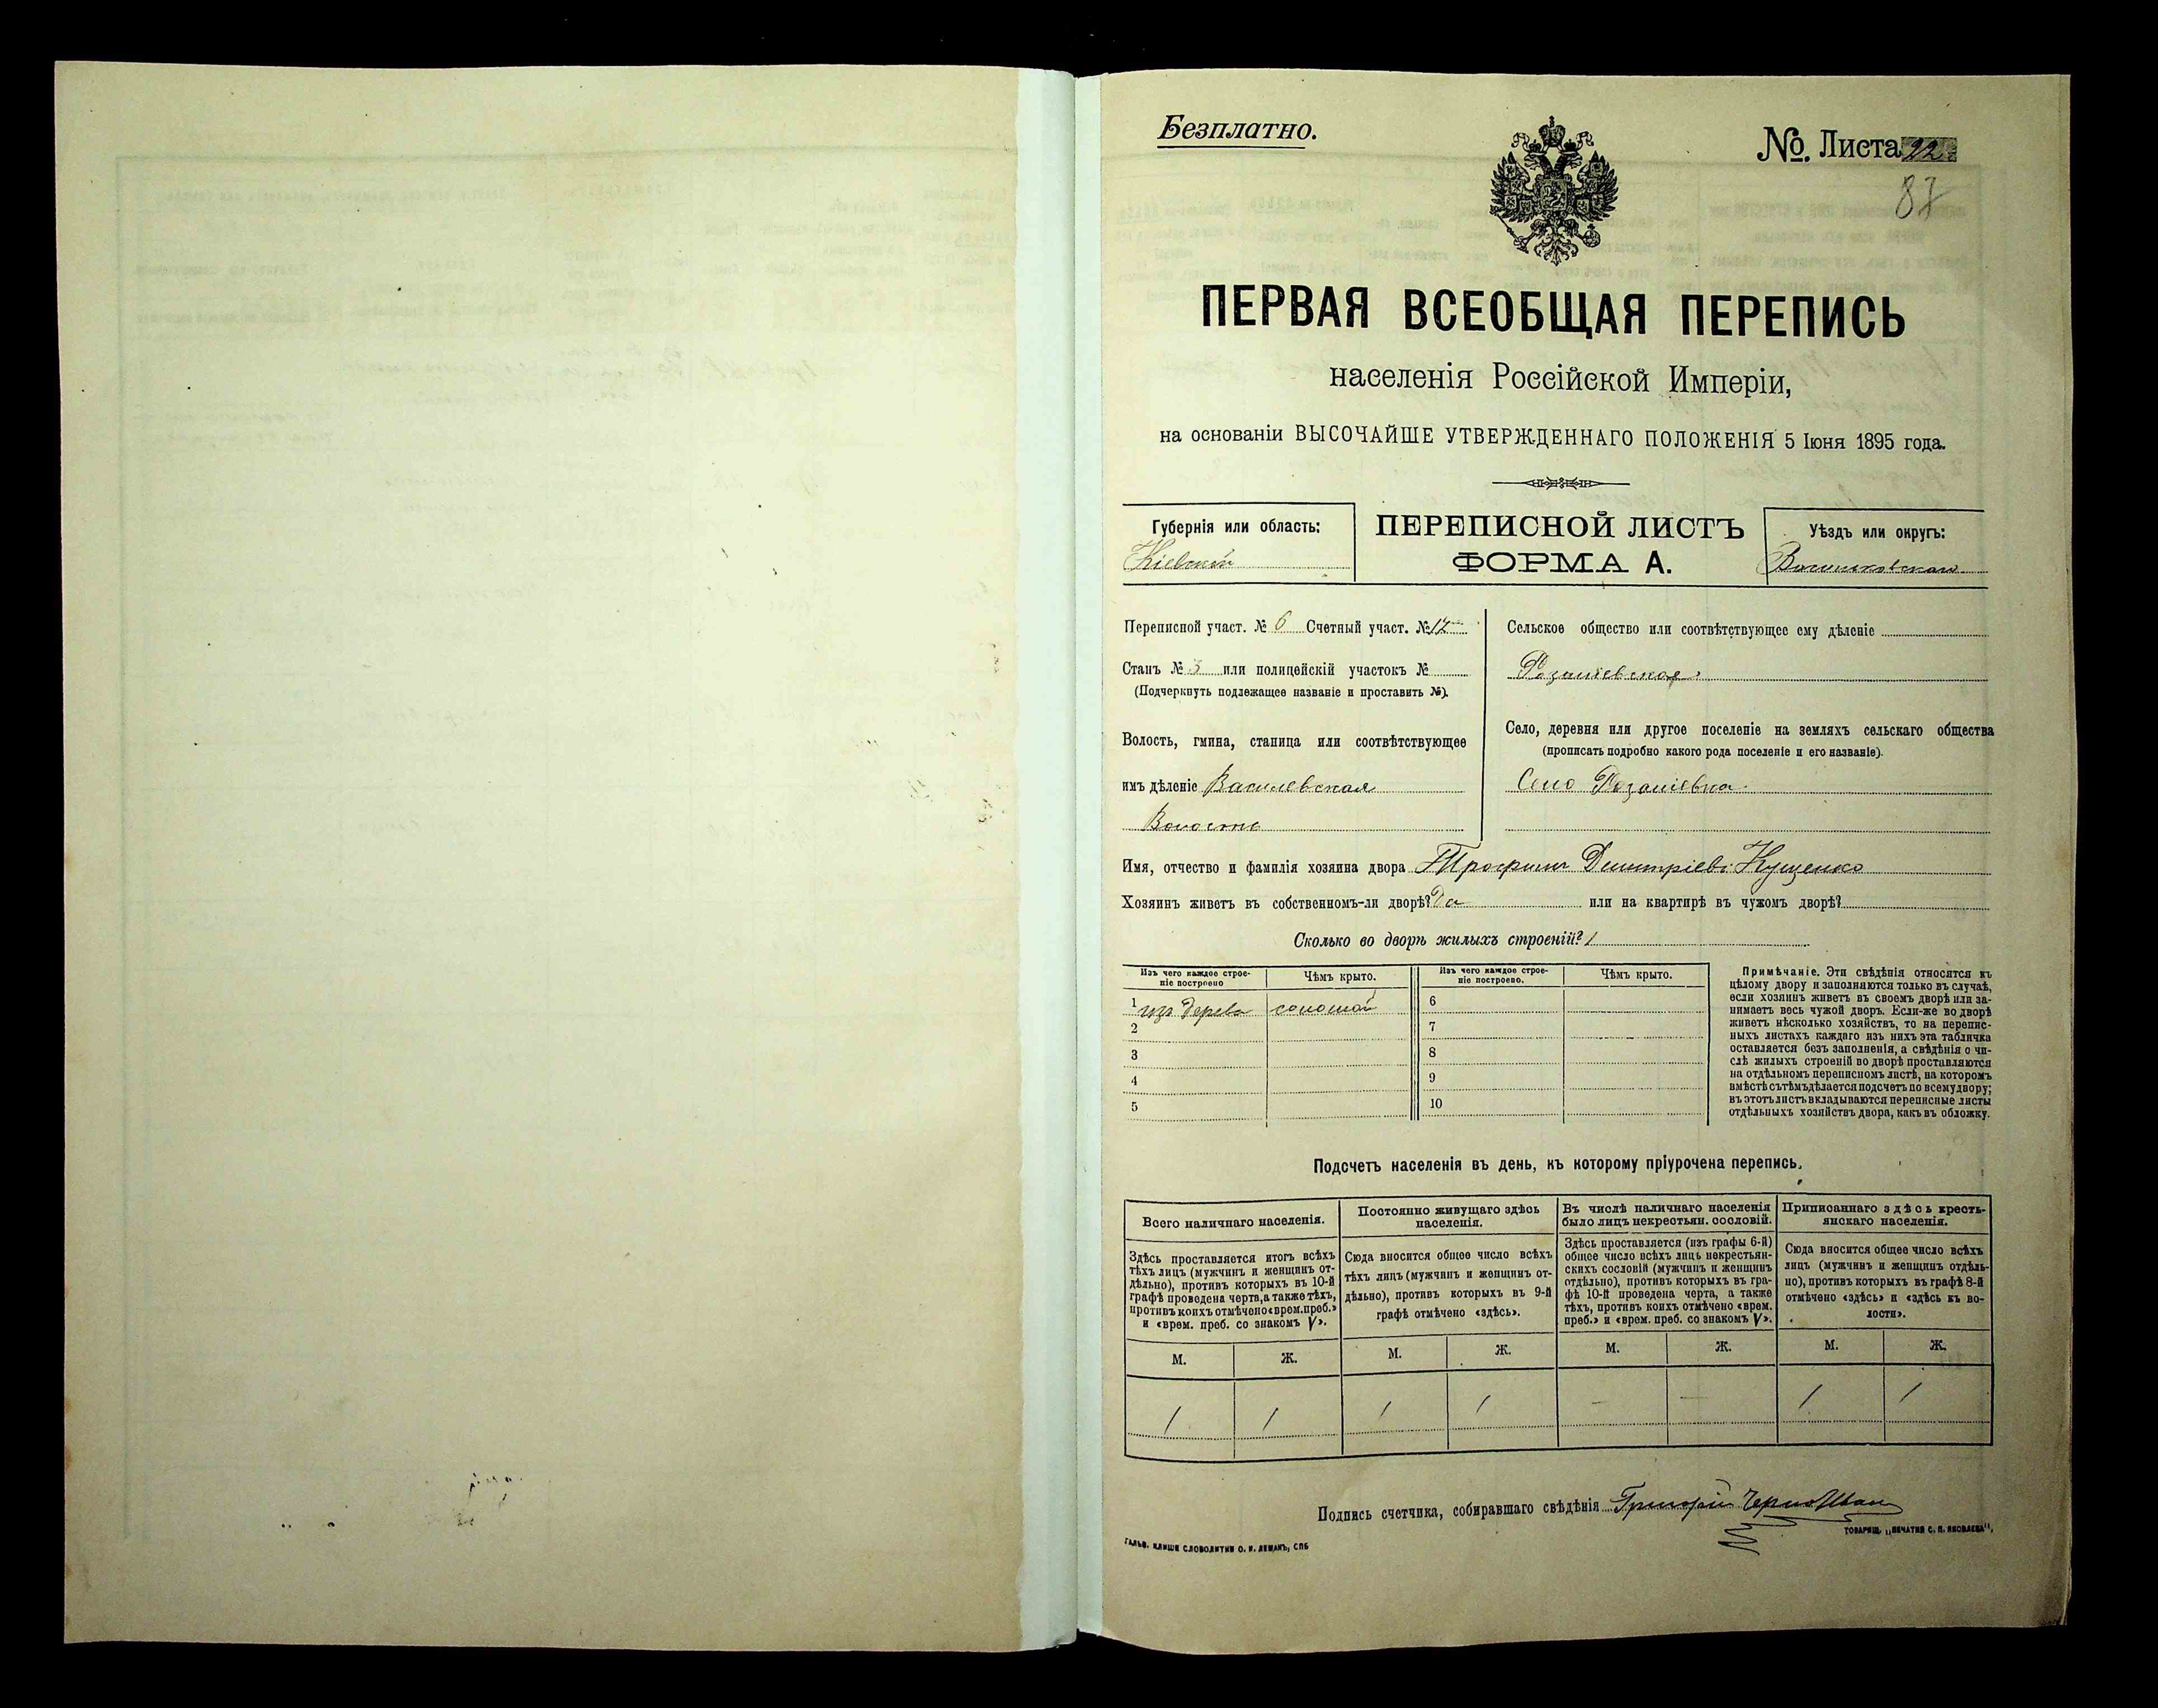 Безплатно.
№. Листа 22.
87
ПЕРВАЯ ВСЕОБЩАЯ ПЕРЕПИСЬ
населенія Россійской Имперіи,
на основаніи ВЫСОЧАЙШЕ УТВЕРЖДЕННАГО ПОЛОЖЕНІЯ 5 Іюня 1895 года.
Губернія или область:
Кіевская
ПЕРЕПИСНОЙ ЛИСТЪ
ФОРМА А.
Уѣздъ или округъ:
Васильковскаго
Переписной участ. № 6 Счетный участ. № 12
Станъ № 3 или полицейскій участокъ №
(Подчеркнуть подлежащее названіе и проставить №).
Волость, гмина, станица или соотвѣтствующее
имъ дѣленіе Василевская
Волость
Сельское общество или соотвѣтствующее ему дѣленіе
Розаліевское
Село, деревня или другое поселеніе на земляхъ сельскаго общества
(прописать подробно какого рода поселеніе и его названіе).
Село Розаліевка
Имя, отчество и фамилія хозяина двора Трофимъ Дмитріевъ Кущенко
Хозяинъ живетъ въ собственномъ-ли дворѣ? Да или на квартирѣ въ чужомъ дворѣ?
Сколько во дворѣ жилыхъ строеній? 1
Изъ чего каждое строе-
ніе построено
Чѣмъ крыто.
Изъ чего каждое строе-
ніе построено.
Чѣмъ крыто.
1 изъ дерева соломой 6
2 7
3 8
4 9
5 10
Примѣчаніе. Эти свѣдѣнія относятся къ
цѣлому двору и заполняются только въ случаѣ,
если хозяинъ живетъ въ своемъ дворѣ или за-
нимаетъ весь чужой дворъ. Если-же во дворѣ
живетъ нѣсколько хозяйствъ, то на перепис-
ныхъ листахъ каждаго изъ нихъ эта табличка
оставляется безъ заполненія, а свѣдѣнія о чи-
слѣ жилыхъ строеній во дворѣ проставляются
на отдѣльномъ переписномъ листѣ, на которомъ
вмѣстѣ съ тѣмъ дѣлается подсчетъ по всему двору;
въ этотъ листъ вкладываются переписные листы
отдѣльныхъ хозяйствъ двора, какъ въ обложку.
Подсчетъ населенія въ день, къ которому пріурочена перепись.
Всего наличнаго населенія.
Здѣсь проставляется итогъ всѣхъ
тѣхъ лицъ (мужчинъ и женщинъ от-
дѣльно), противъ которыхъ въ 10-й
графѣ проведена черта, а также тѣхъ,
противъ коихъ отмѣчено «врем. преб.»
и «врем. преб. со знакомъ V».
Постоянно живущаго здѣсь
населенія.
Сюда вносится общее число всѣхъ
тѣхъ лицъ (мужчинъ и женщинъ от-
дѣльно), противъ которыхъ въ 9-й
графѣ отмѣчено «здѣсь».
Въ числѣ наличнаго населенія
было лицъ некрестьян. сословій.
Здѣсь проставляется (изъ графы 6-й)
общее число всѣхъ лицъ некрестьян-
скихъ сословій (мужчинъ и женщинъ
отдѣльно), противъ которыхъ въ гра-
фѣ 10-й проведена черта, а также
тѣхъ, противъ коихъ отмѣчено «врем.
преб.» и «врем. преб. со знакомъ V».
Приписаннаго здѣсь кресть-
янскаго населенія.
Сюда вносится общее число всѣхъ
лицъ (мужчинъ и женщинъ отдѣль-
но), противъ которыхъ въ графѣ 8-й
отмѣчено «здѣсь» и «здѣсь къ во-
лости».
М. Ж. М. Ж. М. Ж. М. Ж.
1 1 1 1 — — 1 1
Подпись счетчика, собиравшаго свѣдѣнія Григорій
ГАЛЬВ. КЛИШЕ СЛОВОЛИТНИ О. И. ЛЕМАНЪ, СПБ
ТОВАРИЩ. „ПЕЧАТНЯ С. П. ЯКОВЛЕВА“,